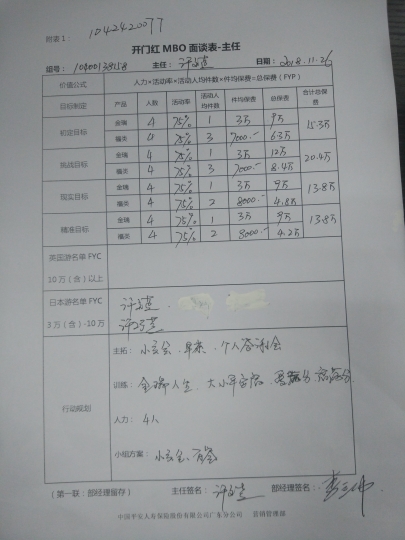 附表1: 1042420077
开门红 MBO 面谈表-主任
组号: 10400138158 主任: 日期: 2018.11.26
价值公式 人力×活动率×活动人均件数×件均保费=总保费 (FYP)
目标制定 产品 人数 活动率 活动人均件数 件均保费 总保费 合计总保费
初定目标 金瑞 4 75% 1 3万 9万 15.3万
福类 4 75% 3 7000.- 6.3万
挑战目标 金瑞 4 75% 1 3万 12万 20.4万
福类 4 75% 3 7000.- 8.4万
现实目标 金瑞 4 75% 1 3万 9万 13.8万
福类 4 75% 2 8000.- 4.8万
精准目标 金瑞 4 75% 1 3万 9万 13.8万
福类 4 75% 2 8000.- 4.2万
英国游名单 FYC
10 万(含)以上
日本游名单 FYC
3 万(含)-10万
行动规划
主拓: 小产会、早展、个人答谢会
训练: 金瑞人生、大小早会
人力: 4人
小组方案: 小产会
(第一联:部经理留存) 主任签名: 部经理签名:
中国平安人寿保险股份有限公司广东分公司 营销管理部